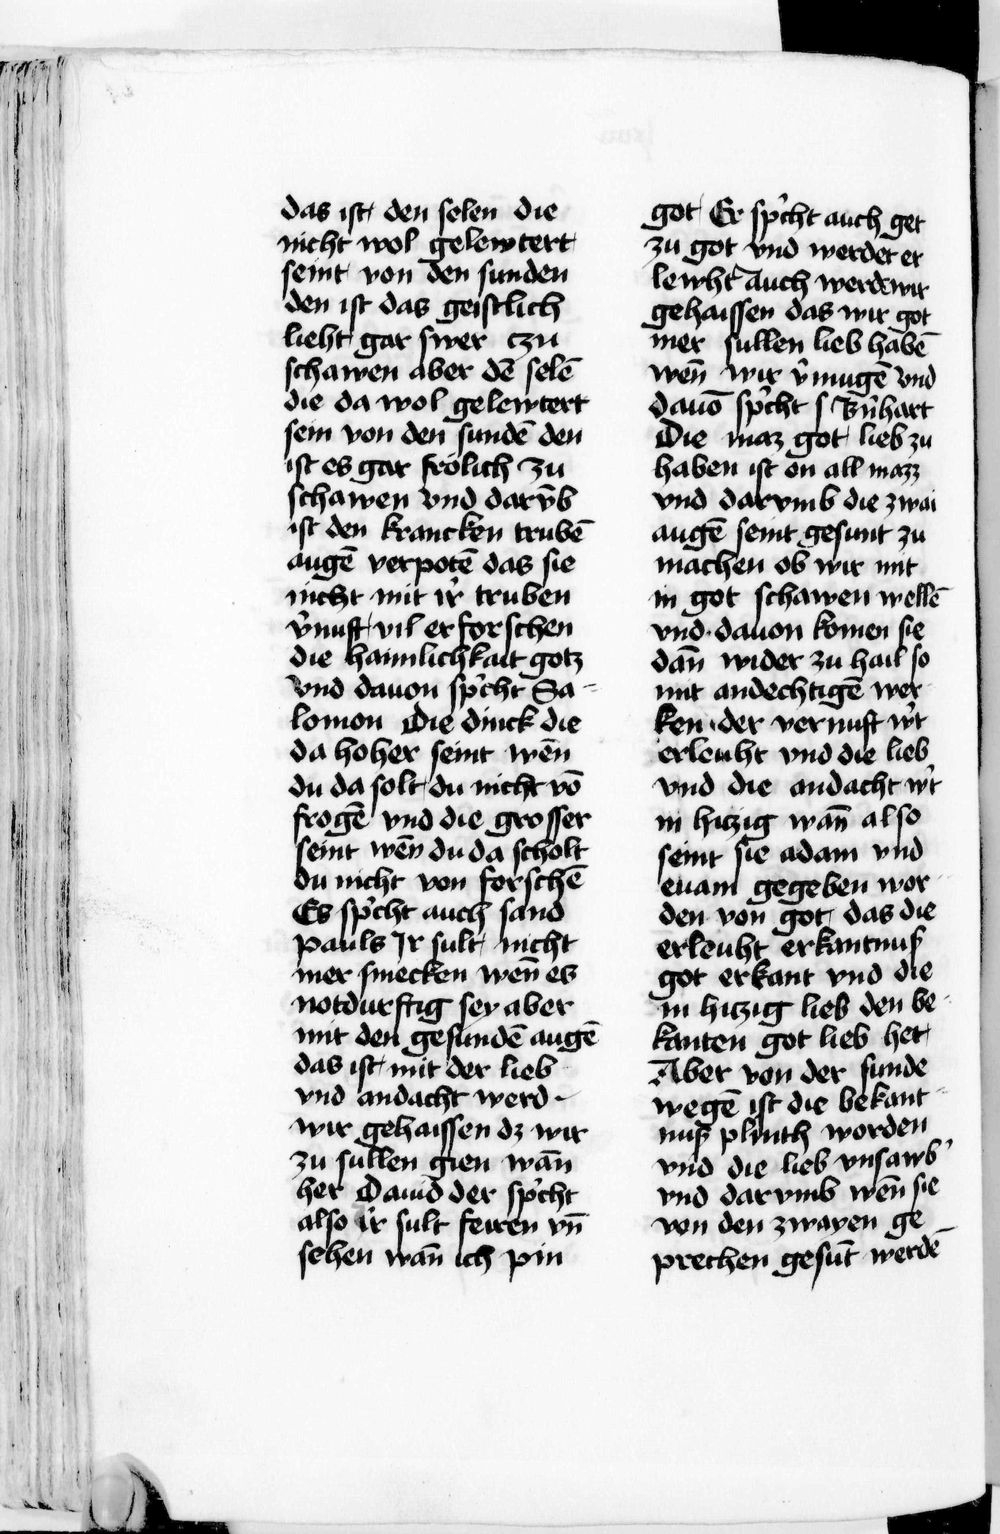 das ist den selen die
nicht wol gelewtert
seint von den sunden
den ist das geistlich
lieht gar swer czu
schawen aber dē selē
die da wol gelewtert
sein von den sundē den
ist es gar frölich zu
schawen vnd darv̄b
ist den krancken trubē
augē verpotē das sie
nicht mit ir̛ truben
v̛nuft vil erforschen
die haimlichkait gotz
vnd dauon sp̛cht Sa-
lomon Die dinck die
da hoher seint wēn
du da solt du nicht vō
frogē vnd die grosser
seint wēn du da scholt
du nicht von forschē
Es sp̛cht auch sand
pauls Ir sult nicht
mer smecken wen̄ es
notdurftig sey aber
mit den gesundē augē
das ist mit der lieb
vnd andacht werd
wir gehaissen dz wir
zu sullen gien wan̄
her Dauid der sp̛cht
also ir̛ sult feiren vn̄
sehen wan̄ ich pin
got Er sp̛cht auch get
zu got vnd werdet er
lewht̛ Auch werdē wir
gehaissen das wir got
mer sullen lieb habē
wen̄ wir v̛mugē vnd
dauō sp̛cht s Bn̛hart
Die maz got lieb zu
haben ist on all mazz
vnd darvmb die zwai
augē seint gesunt zu
machen ob wir mit
in got schawen wellē
vnd dauon komen sie
dan̄ wider zu hail so
mit andechtigē wer
ken der vernuft w̛t
erleuht vnd die lieb
vnd die andacht w̛t
in hiczig wan̄ also
seint sie adam vnd
euam gegeben wor
den von got das die
erleuht erkantnuß
got erkant vnd die
in hiczig lieb den be-
kanten got lieb het
Aber von der sunde
wegē ist die bekant-
nuß plinth worden
vnd die lieb vnsawb̛
vnd darvmb wēn sie
von den zwayen ge
prechen gesūt werdē